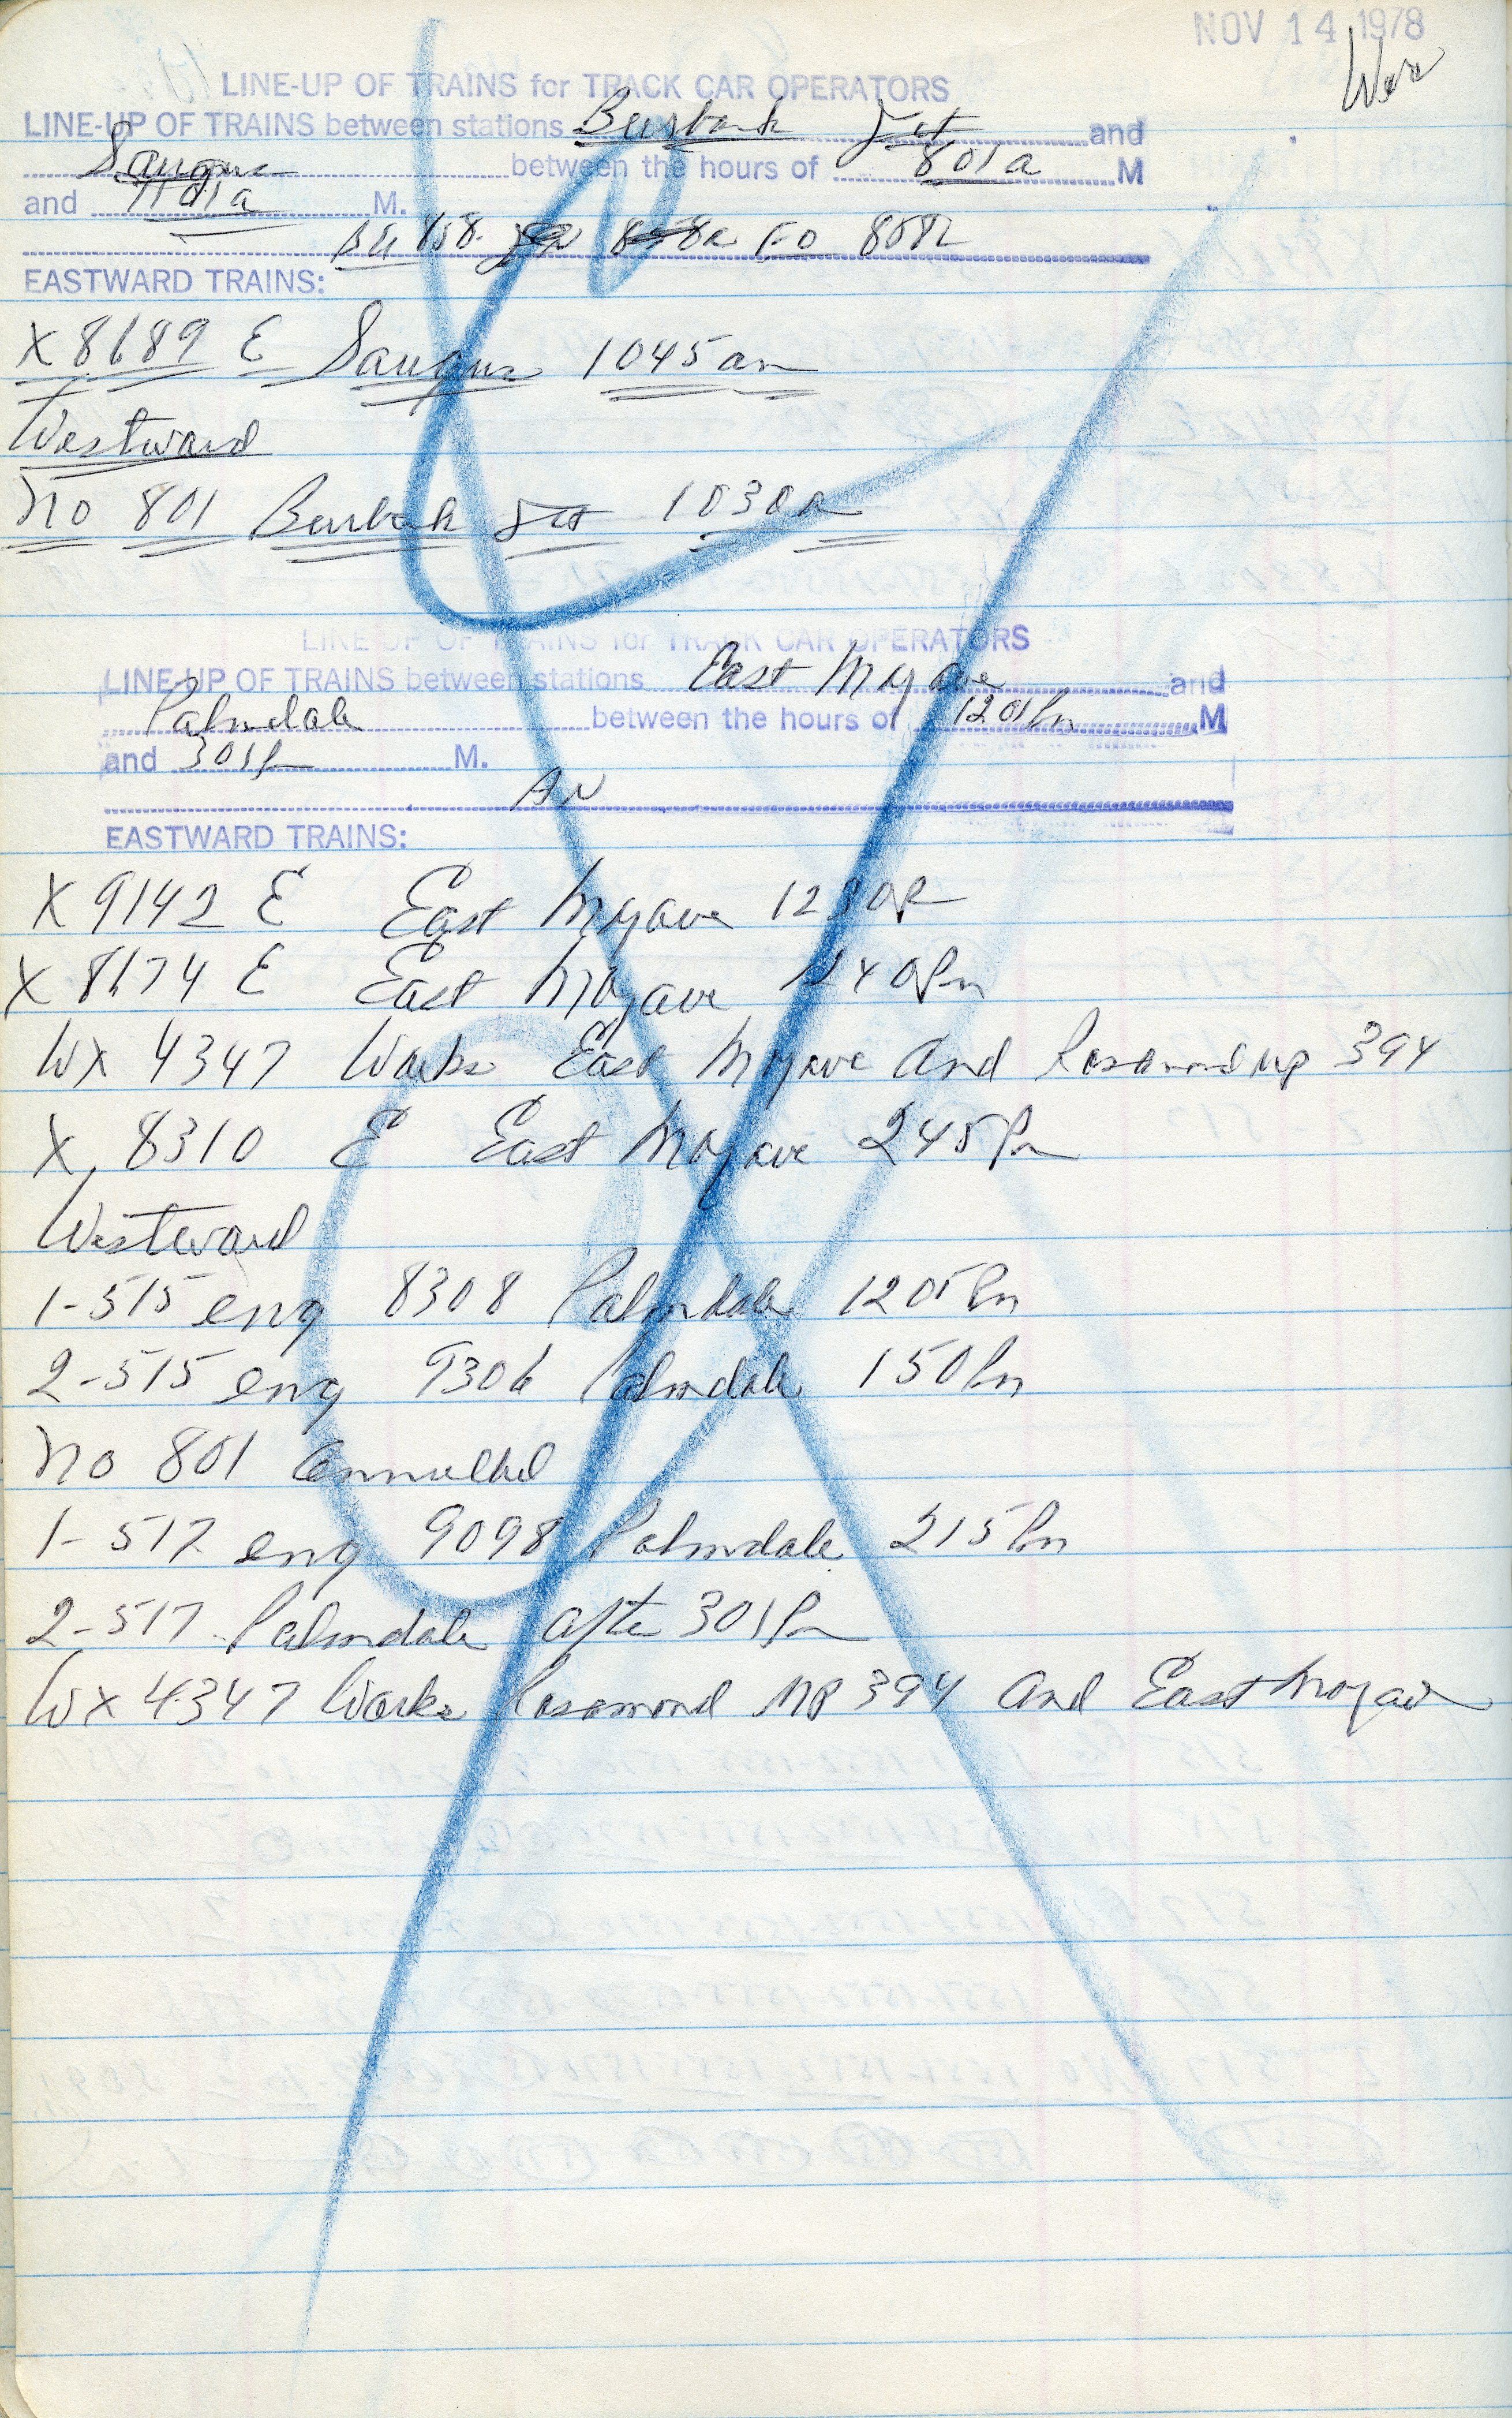 NOV 14 1978
LINE-UP OF TRAINS for TRACK CAR OPERATORS
LINE-UP OF TRAINS between stations Burbank Jct and
Saugus between the hours of 801a M
and 1101a M.
858a 808a
EASTWARD TRAINS:
X 8689 E Saugus 1045am
Westward
No 801 Burbank Jct 1030a
LINE-UP OF TRAINS for TRACK CAR OPERATORS
LINE-UP OF TRAINS between stations East Mojave and
Palmdale between the hours of 1201Pm M
and 301P M.
AN
EASTWARD TRAINS:
X 9142 E East Mojave 1230P
X 8174 E East Mojave 140Pm
WX 4347 Works East Mojave and Rosamond MP 394
X 8310 E East Mojave 245Pm
Westward
1-515 eng 8308 Palmdale 1205Pm
2-515 eng 9306 Palmdale 150Pm
No 801 Annulled
1-517 eng 9098 Palmdale 215Pm
2-517 Palmdale after 301Pm
WX 4347 Works Rosamond MP 394 and East Mojave